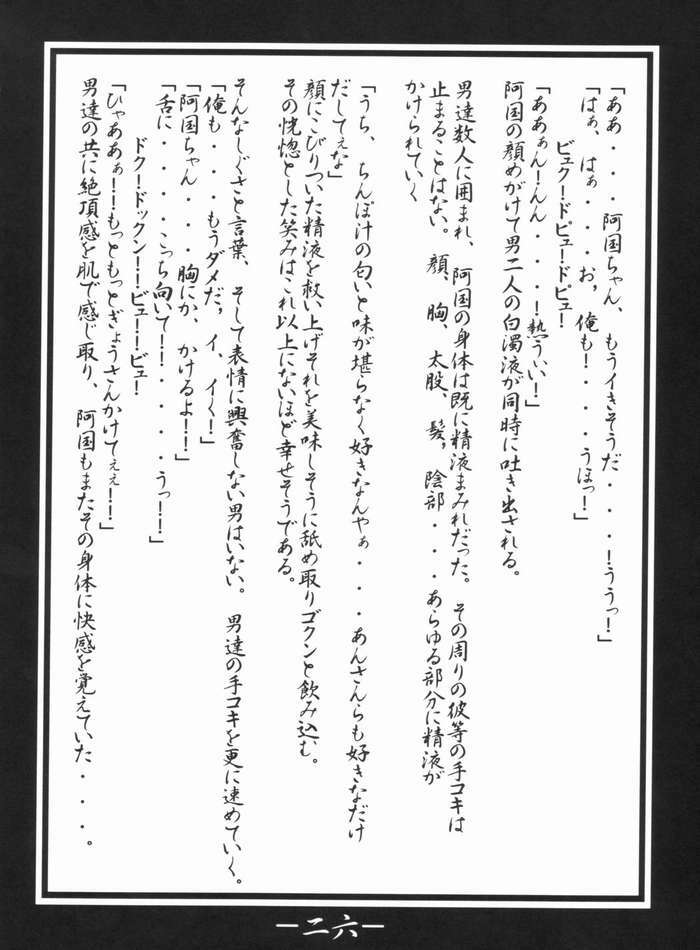 「ああ・・・阿国ちゃん、もうイきそうだ・・・！ううっ！」
「はぁ、はぁ・・・お，俺も！・・・・うほっ！」
ビュク！ドビュー！ドビュ！
「ああぁん！んん・・・・！熱ういい！」
阿国の顔めがけて男二人の白濁液が同時に吐き出される。
男達数人に囲まれ、阿国の身体は既に精液まみれだった。その周りの彼等の手コキは
止まることはない。顔、胸、太股、髪，陰部・・・・あらゆる部分に精液が
かけられていく
「うち、ちんぼ汁の匂いと味が堪らなく好きなんやぁ・・・あんさんらも好きなだけ
だしてぇな」
顔にこびりついた精液を救い上げそれを美味しそうに舐め取りゴクンと飲み込む。
その恍惚とした笑みはこれ以上にないほど幸せそうである。
そんなしぐさと言葉、そして表情に興奮しない男はいない。男達の手コキを更に速めていく。
「俺も・・・もうダメだ，イ、イく！」
「阿国ちゃん・・・・胸にか、かけるよ！！」
「舌に・・・・こっち向いて！！・・・・うっ！！」
ドク！ドックン！！ビュー！！ビュ！
「ひゃああぁ！！もっともっとぎょうさんかけてぇぇ！！」
男達の共に絶頂感を肌で感じ取り、阿国もまたその身体に快感を覚えていた・・・・。
―二六―